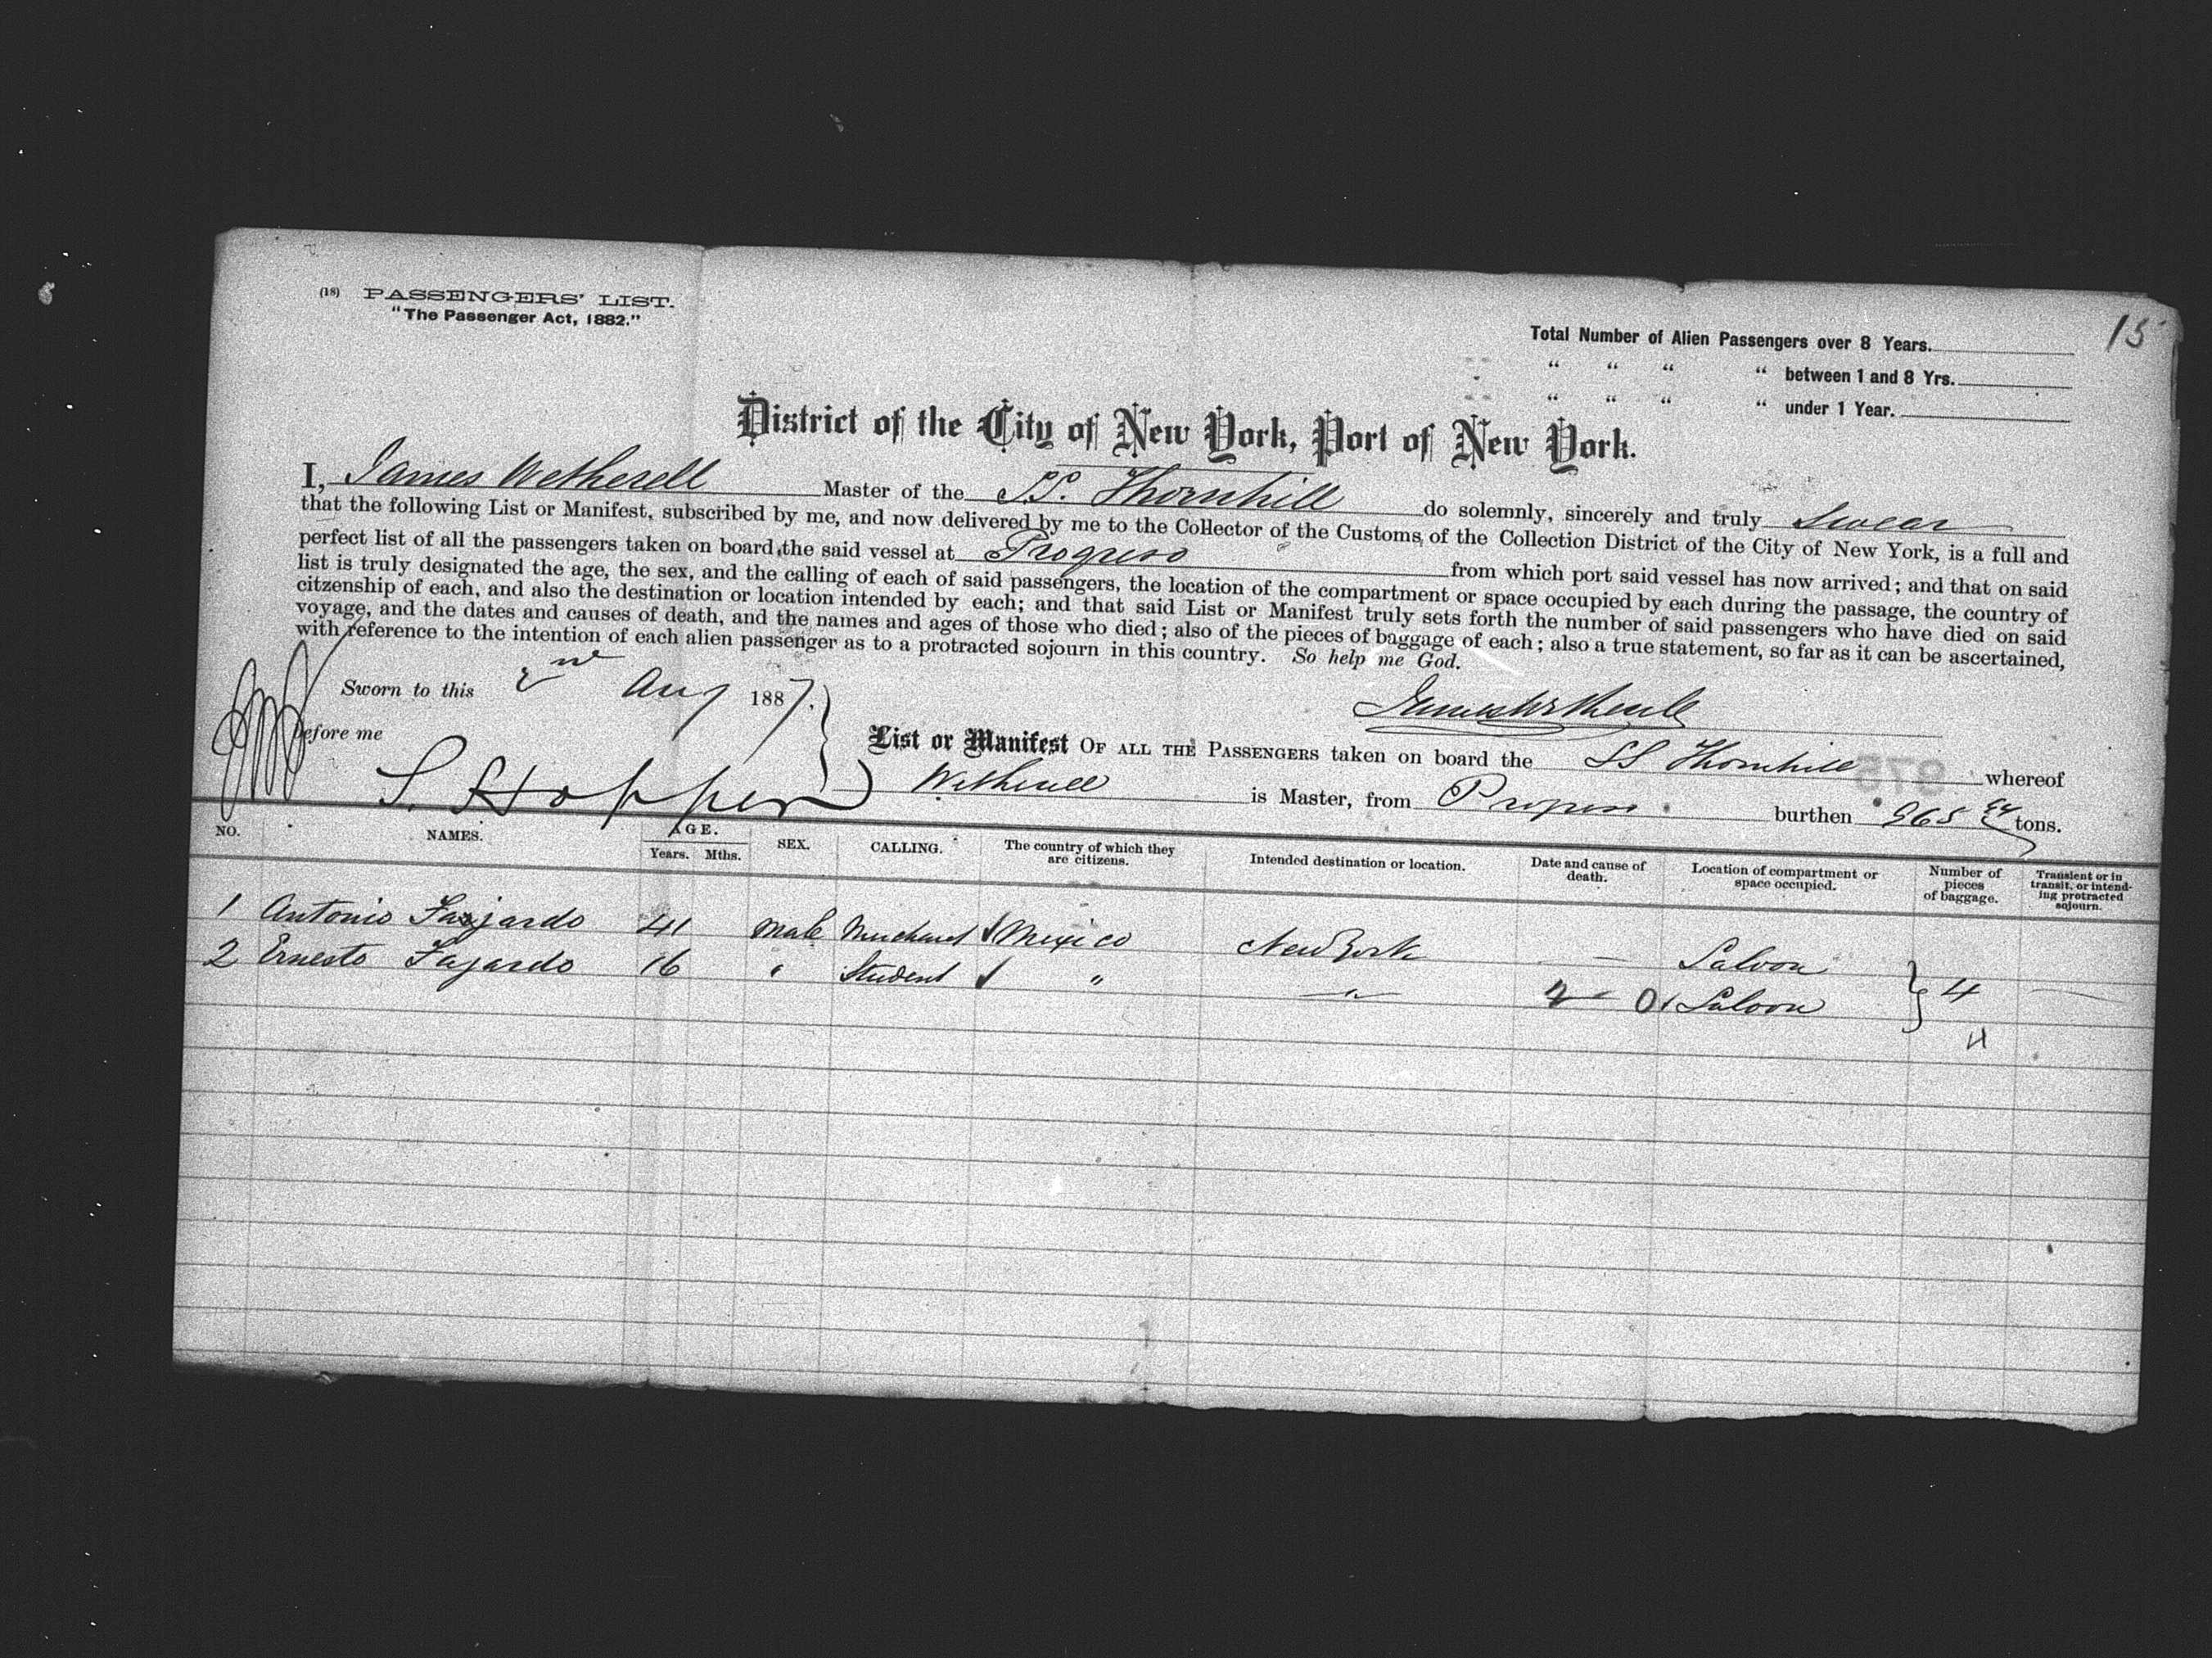 (18) PASSENGERS' LIST.
"The Passenger Act, 1882."
15
Total Number of Alien Passengers over 8 Years.
" " " " between 1 and 8 Yrs.
" " " " under 1 Year.
District of the City of New York, Port of New York.
I, James Wetherell Master of the S.S. Thornhill do solemnly, sincerely and truly Swear
that the following List or Manifest, subscribed by me, and now delivered by me to the Collector of the Customs, of the Collection District of the City of New York, is a full and
perfect list of all the passengers taken on board the said vessel at Progreso from which port said vessel has now arrived; and that on said
list is truly designated the age, the sex, and the calling of each of said passengers, the location of the compartment or space occupied by each during the passage, the country of
citzenship of each, and also the destination or location intended by each; and that said List or Manifest truly sets forth the number of said passengers who have died on said
voyage, and the dates and causes of death, and the names and ages of those who died; also of the pieces of baggage of each; also a true statement, so far as it can be ascertained,
with reference to the intention of each alien passenger as to a protracted sojourn in this country. So help me God.
Sworn to this 2nd Aug 1887.
James Wetherell
before me
S. Hopper
List or Manifest OF ALL THE PASSENGERS taken on board the SS Thornhill whereof
Wetherell is Master, from Progreso burthen 965 tons.
975
NO. NAMES. AGE. Years. Mths. SEX. CALLING. The country of which they are citizens. Intended destination or location. Date and cause of death. Location of compartment or space occupied. Number of pieces of baggage. Transient or in transit, or intending protracted sojourn.
1 Antonio Fajardo 41 Male Merchant Mexico New York — Saloon
2 Ernesto Fajardo 16 " Student " " Saloon 4 —
4